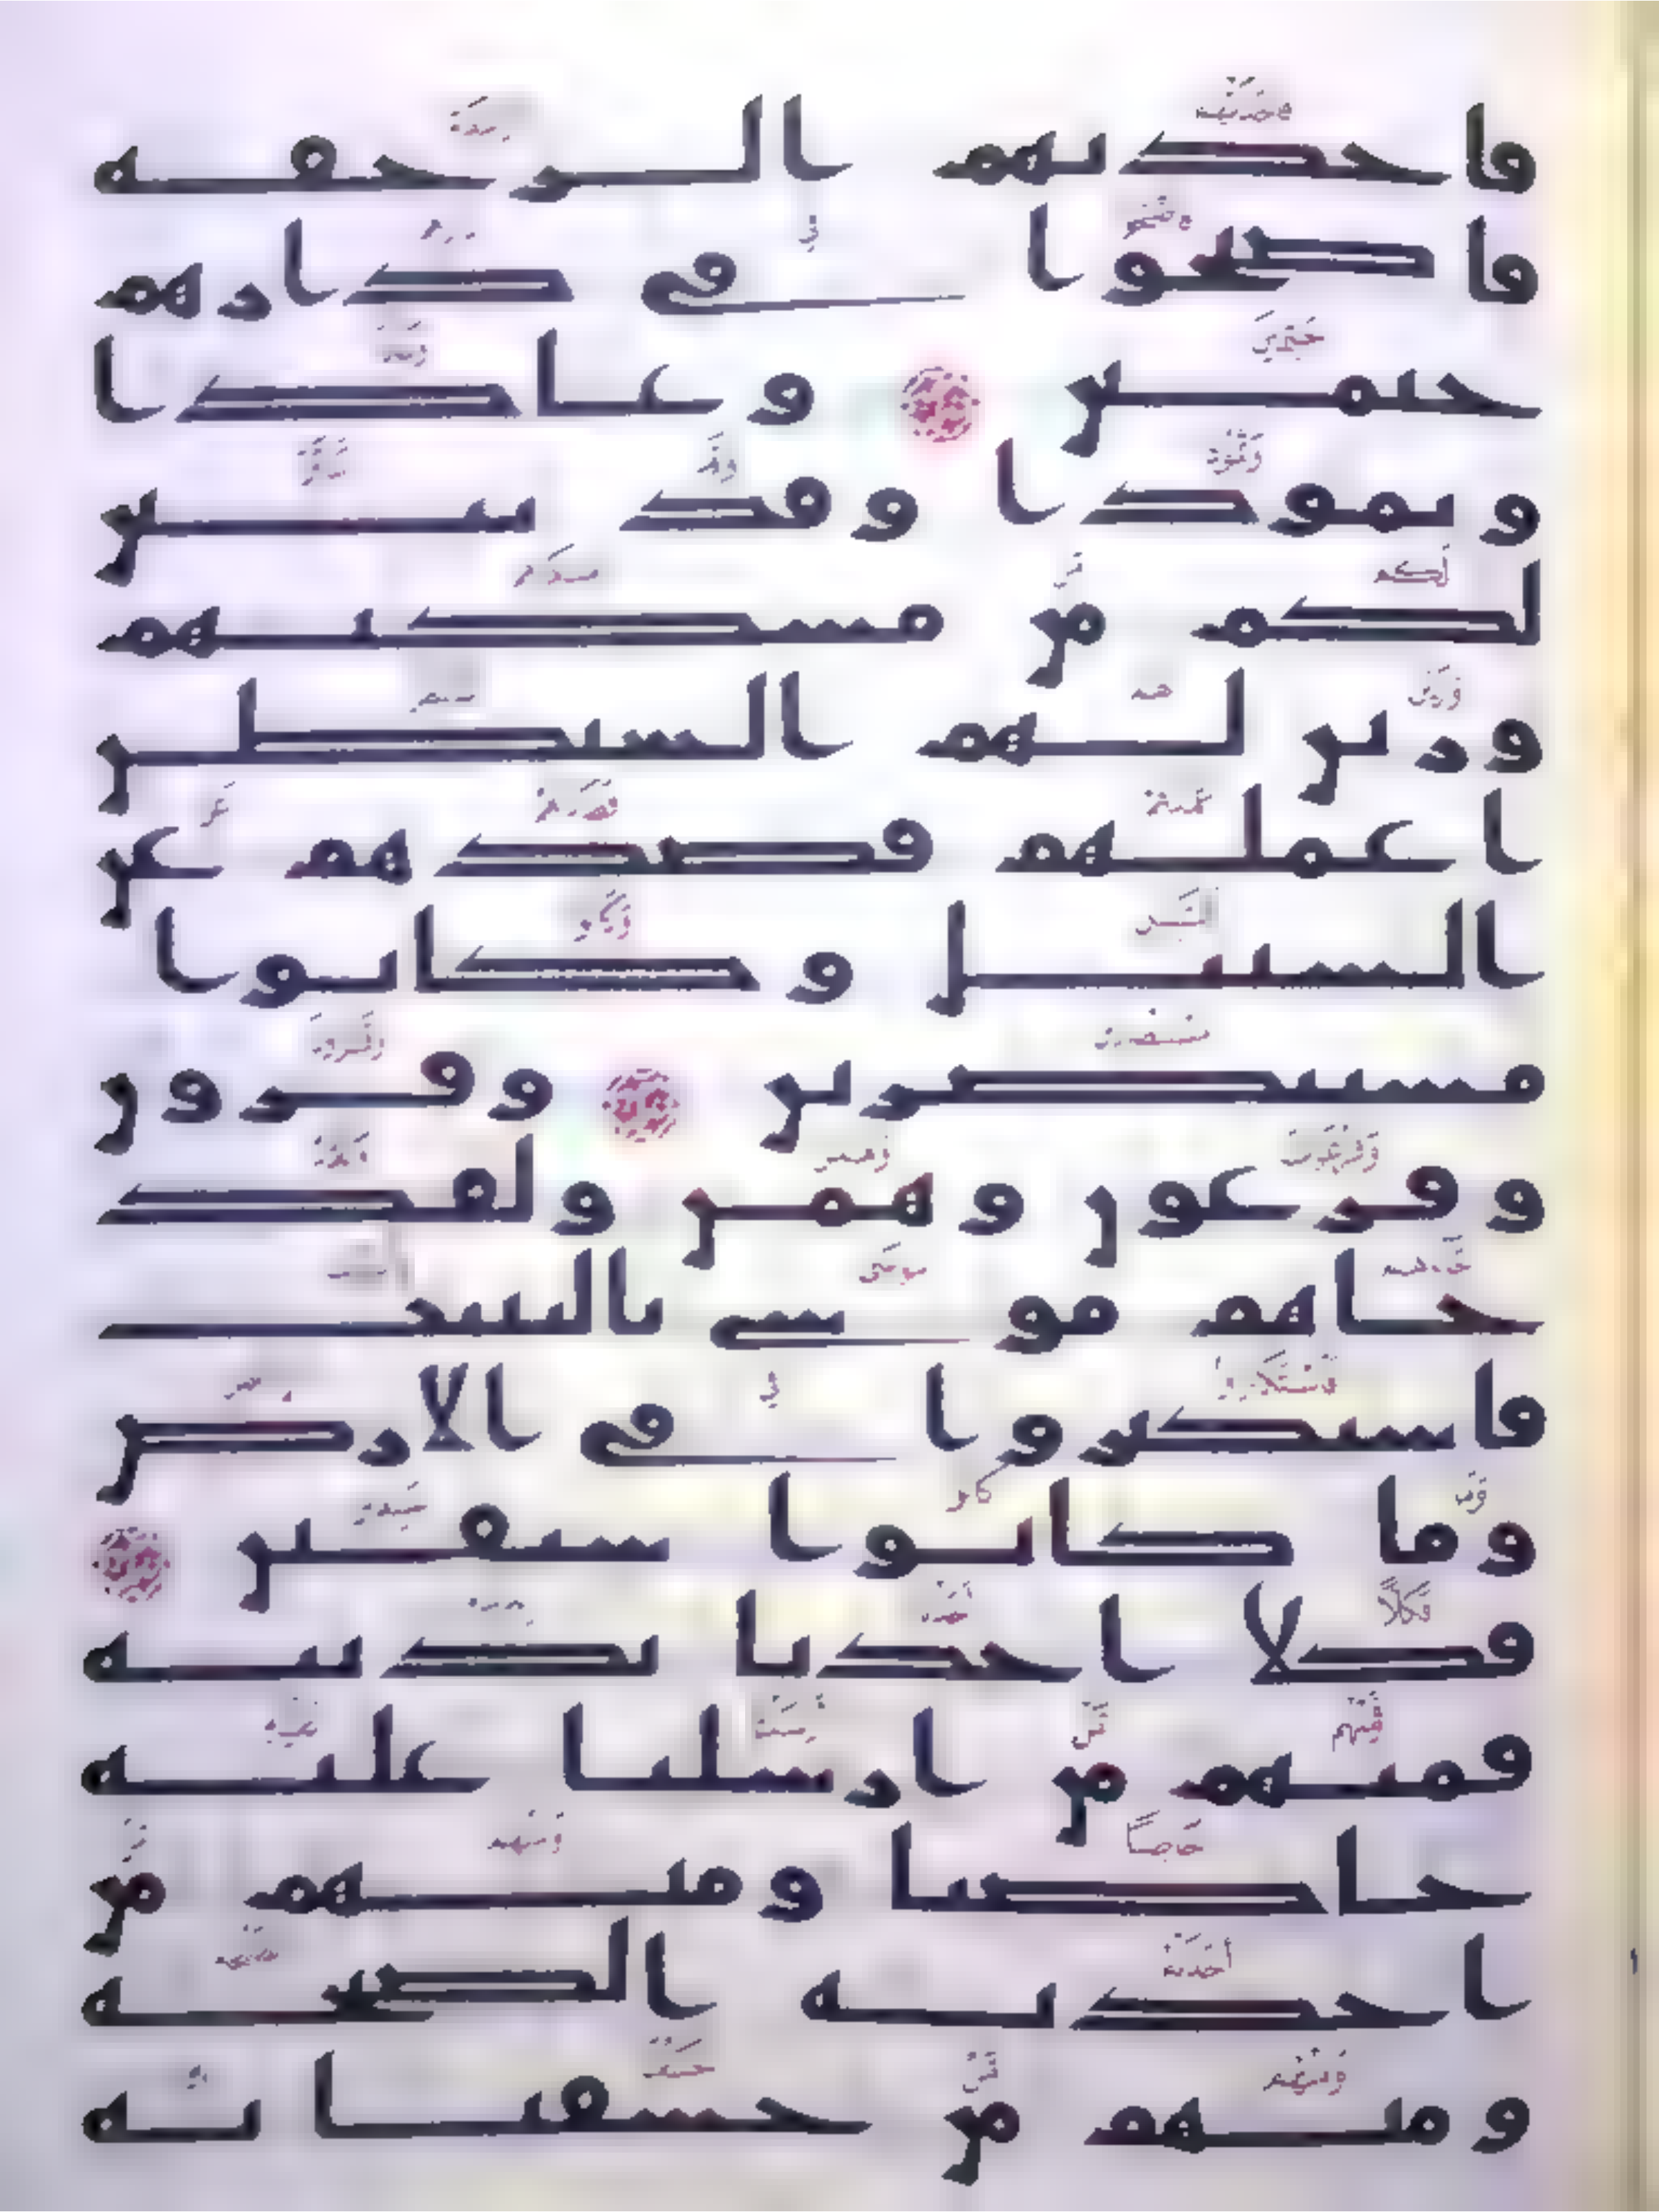 فاخذتهم الرجفه
فاصبحوا في دارهم
جثمين وعادا
وثمودا وقد تبين
لكم من مسكنهم
وزين لهم الشيطن
اعملهم فصدهم عن
السبيل وكانوا
مستبصرين وقرون
وفرعون وهمن ولقد
جاهم موسى بالبينت
فاستكبروا في الارض
وما كانوا سبقين
فكلا اخذنا بذنبه
فمنهم من ارسلنا عليه
حاصبا ومنهم من
اخذته الصيحه
ومنهم من خسفنا به